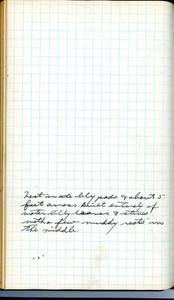 Nest made lily pads & about 5
feet across. Built entirely of
water lily leaves & stems
with a few muddy roots in
the middle.